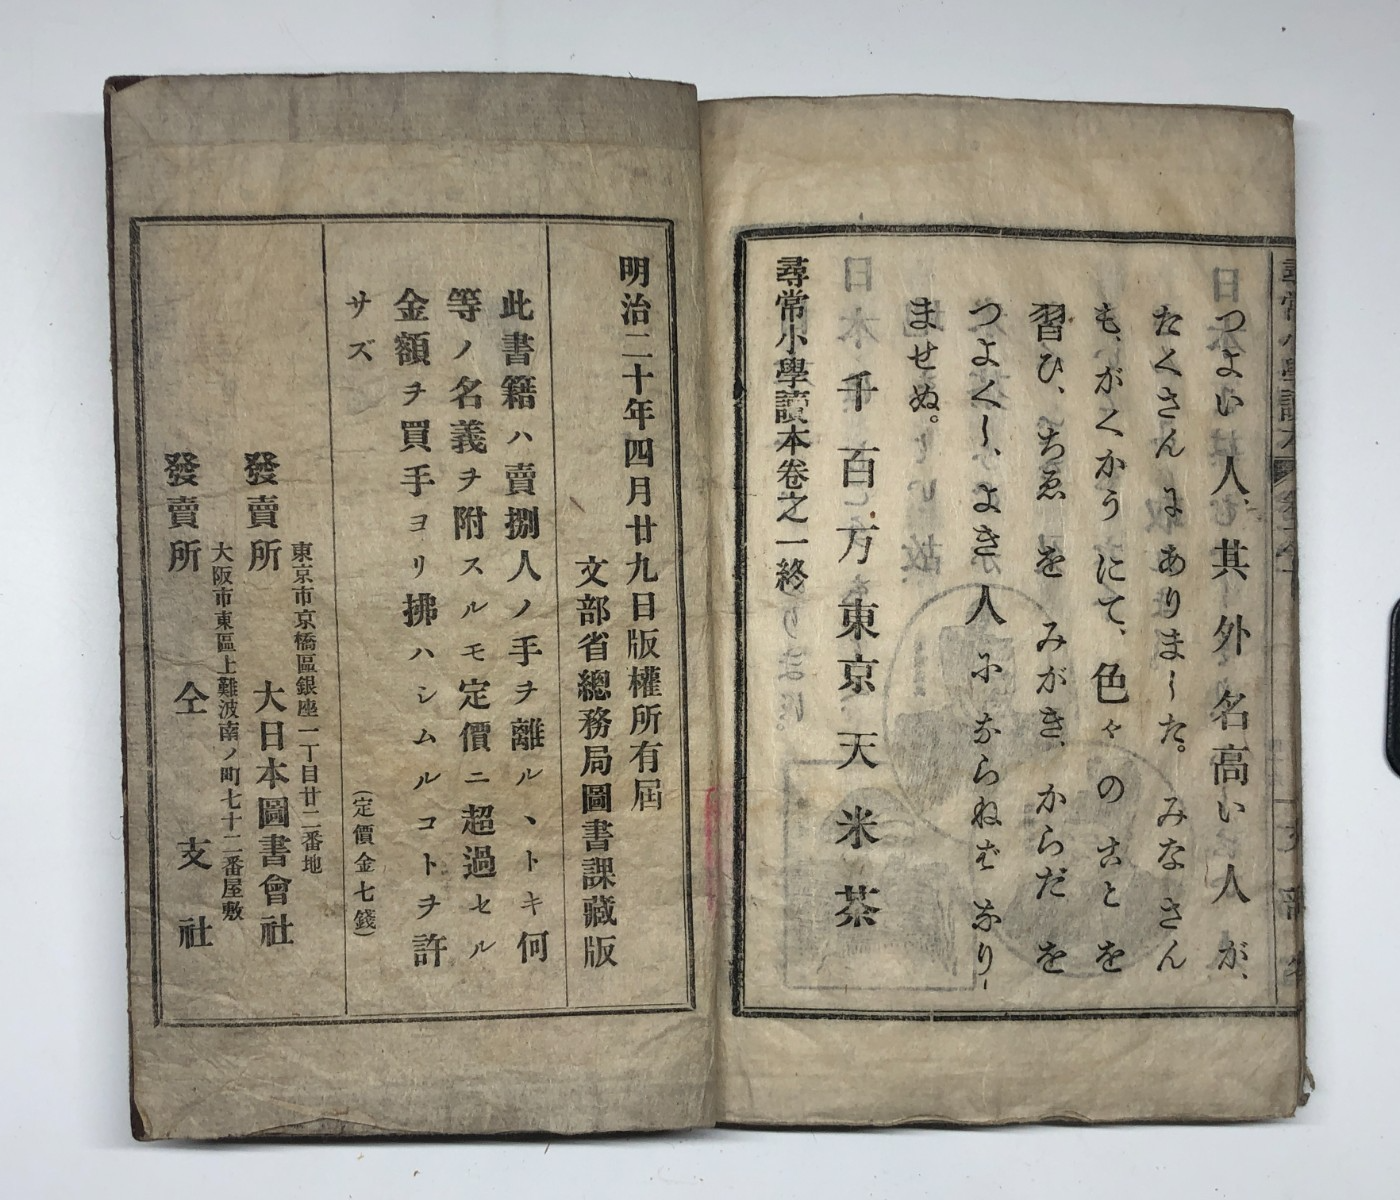 つよい人、其外名高い人が、
たくさんにありました。みなさん
も、がくかうにて、色々のことを
習ひ、ちゑをみがき、からだを
つよくし、よき人にならねばなり
ませぬ。
日本千百万東京天米茶
尋常小學讀本卷之一終
明治二十年四月廿九日版權所有屆
文部省總務局圖書課藏版
此書籍ハ賣捌人ノ手ヲ離ルヽトキ何
等ノ名義ヲ附スルモ定價ニ超過セル
金額ヲ買手ヨリ拂ハシムルコトヲ許
サズ
(定價金七錢)
東京市京橋區銀座一丁目廿二番地
發賣所 大日本圖書會社
大阪市東區上難波南ノ町七十二番屋敷
發賣所 仝 支社